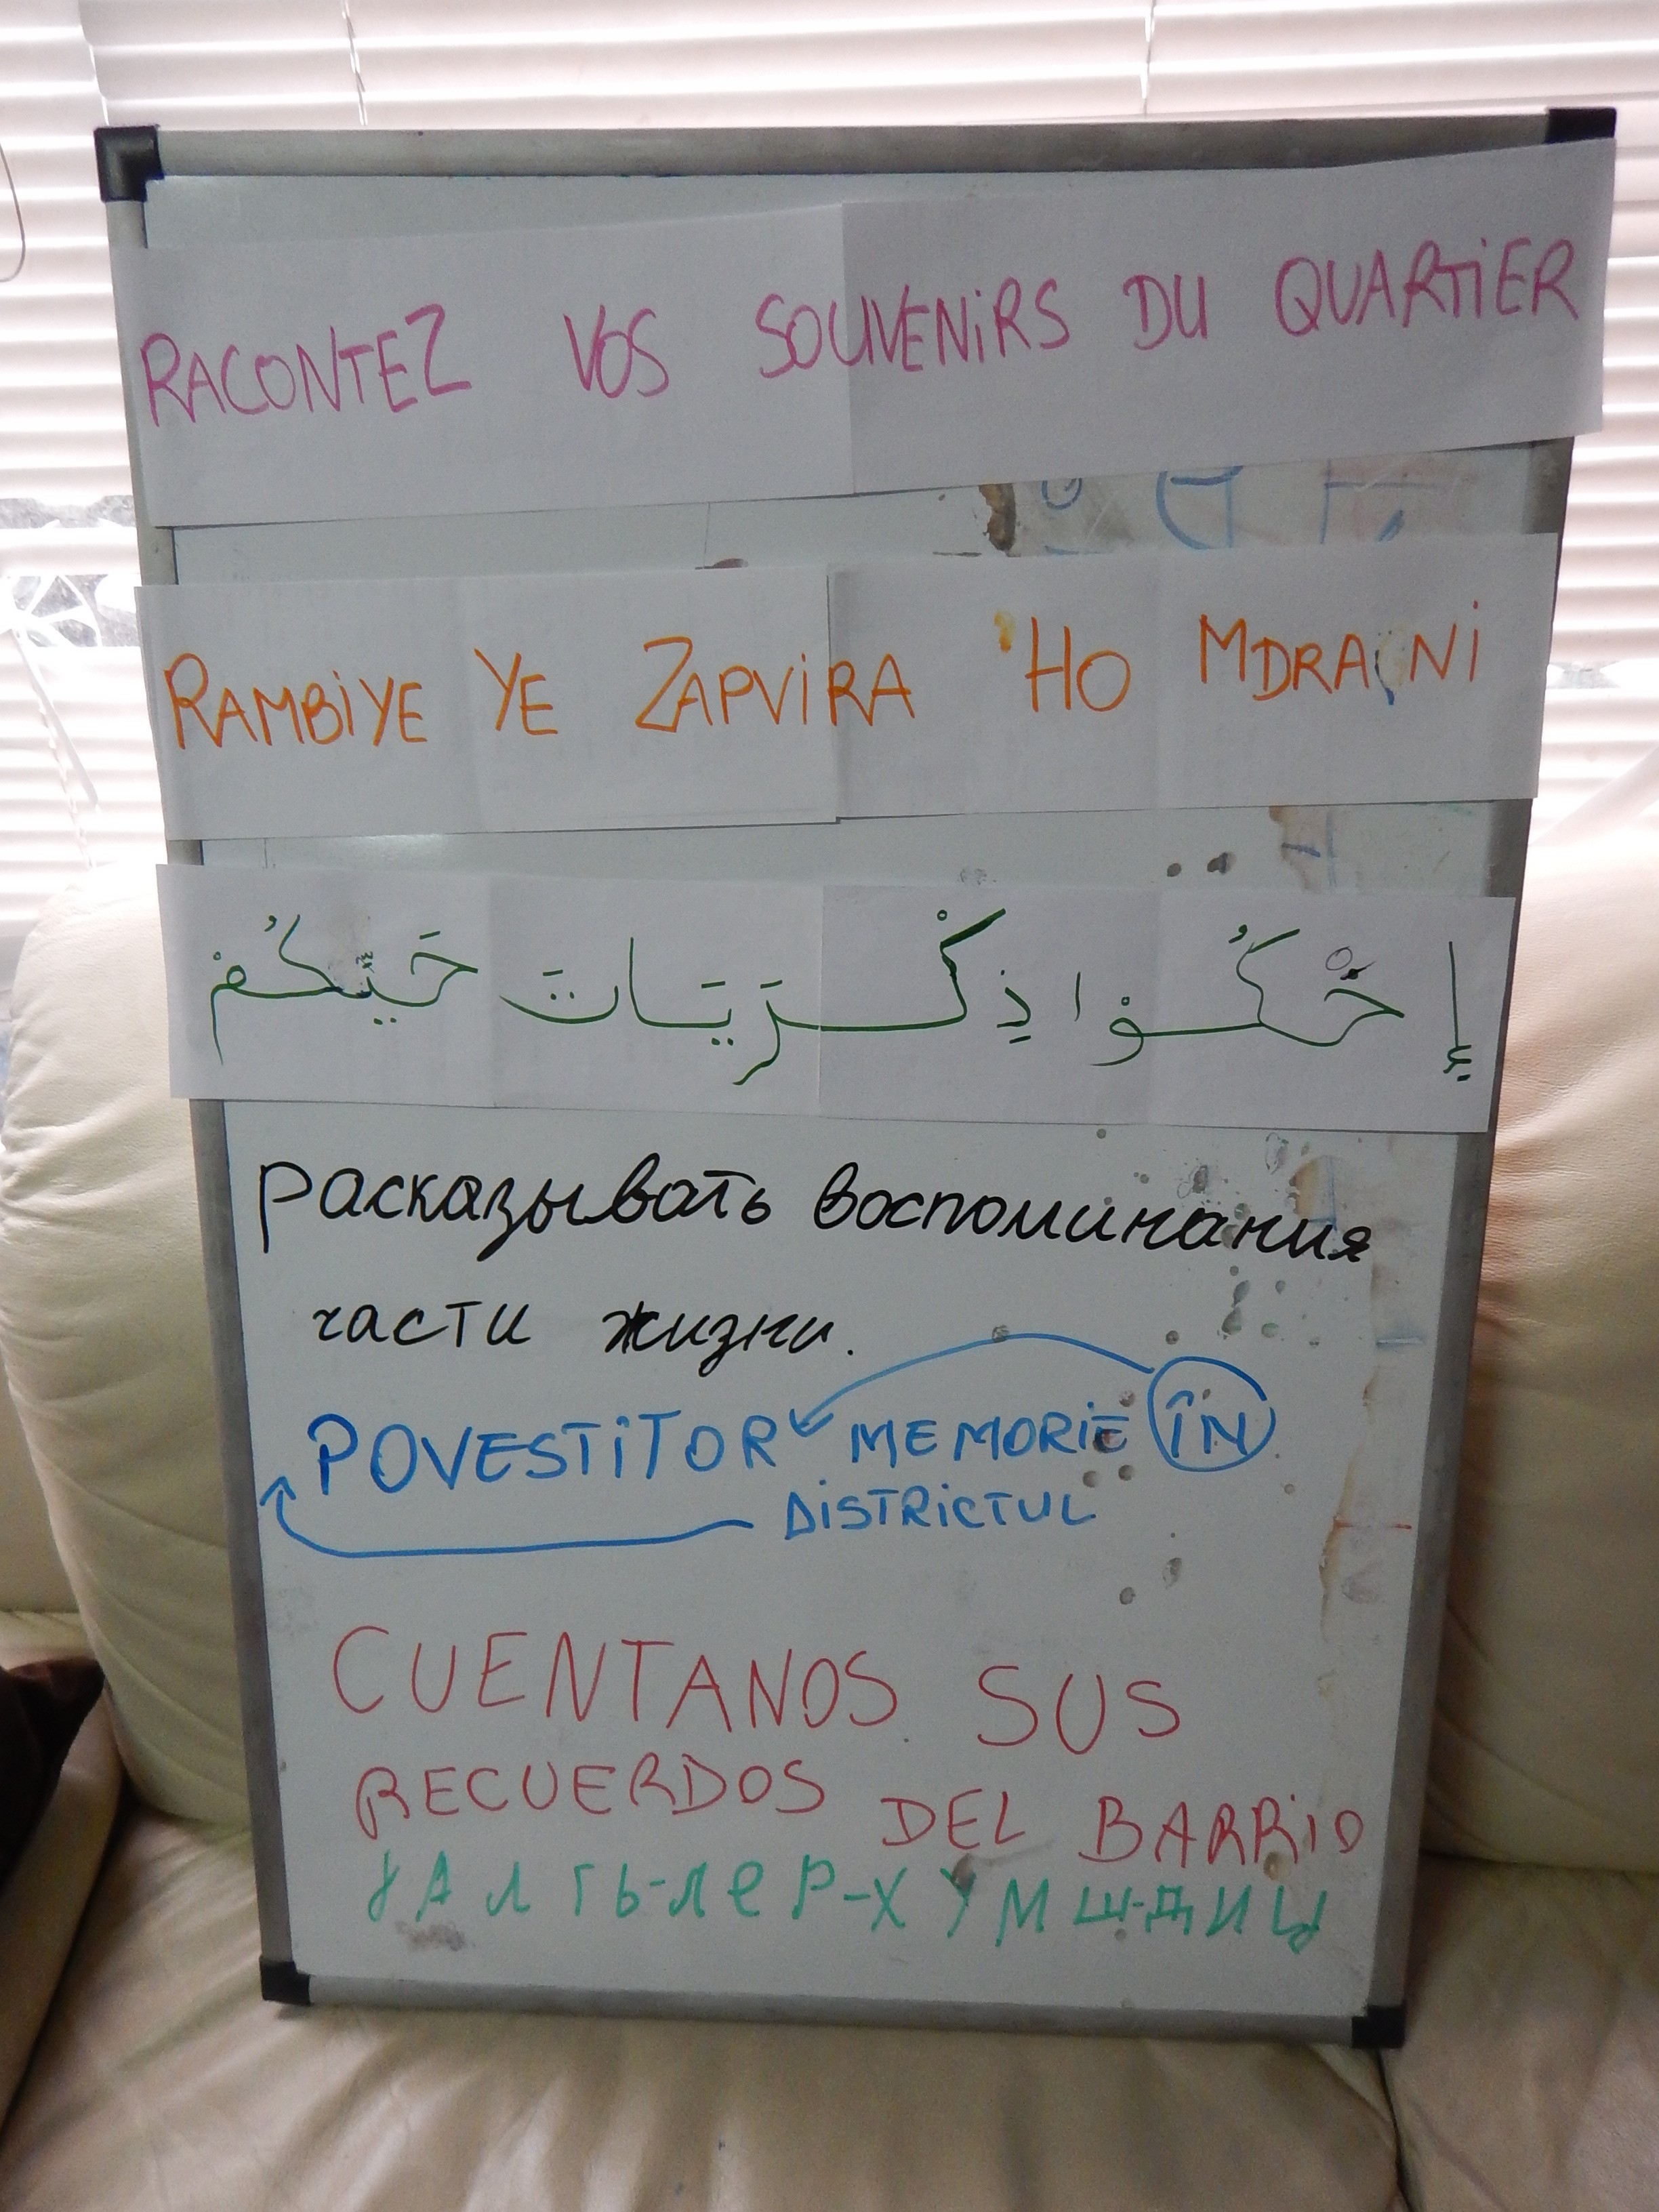 RACONTEZ VOS SOUVENIRS DU QUARTIER
RAMBIYE YE ZAPVIRA 'HO MDRANI
إِحْكُوا ذِكْرَيَاتَ حَيِّكُم
расказывать воспоминания
части жизни.
POVESTITOR MEMORIE ÎN
DISTRICTUL
CUENTANOS SUS
RECUERDOS DEL BARRIO